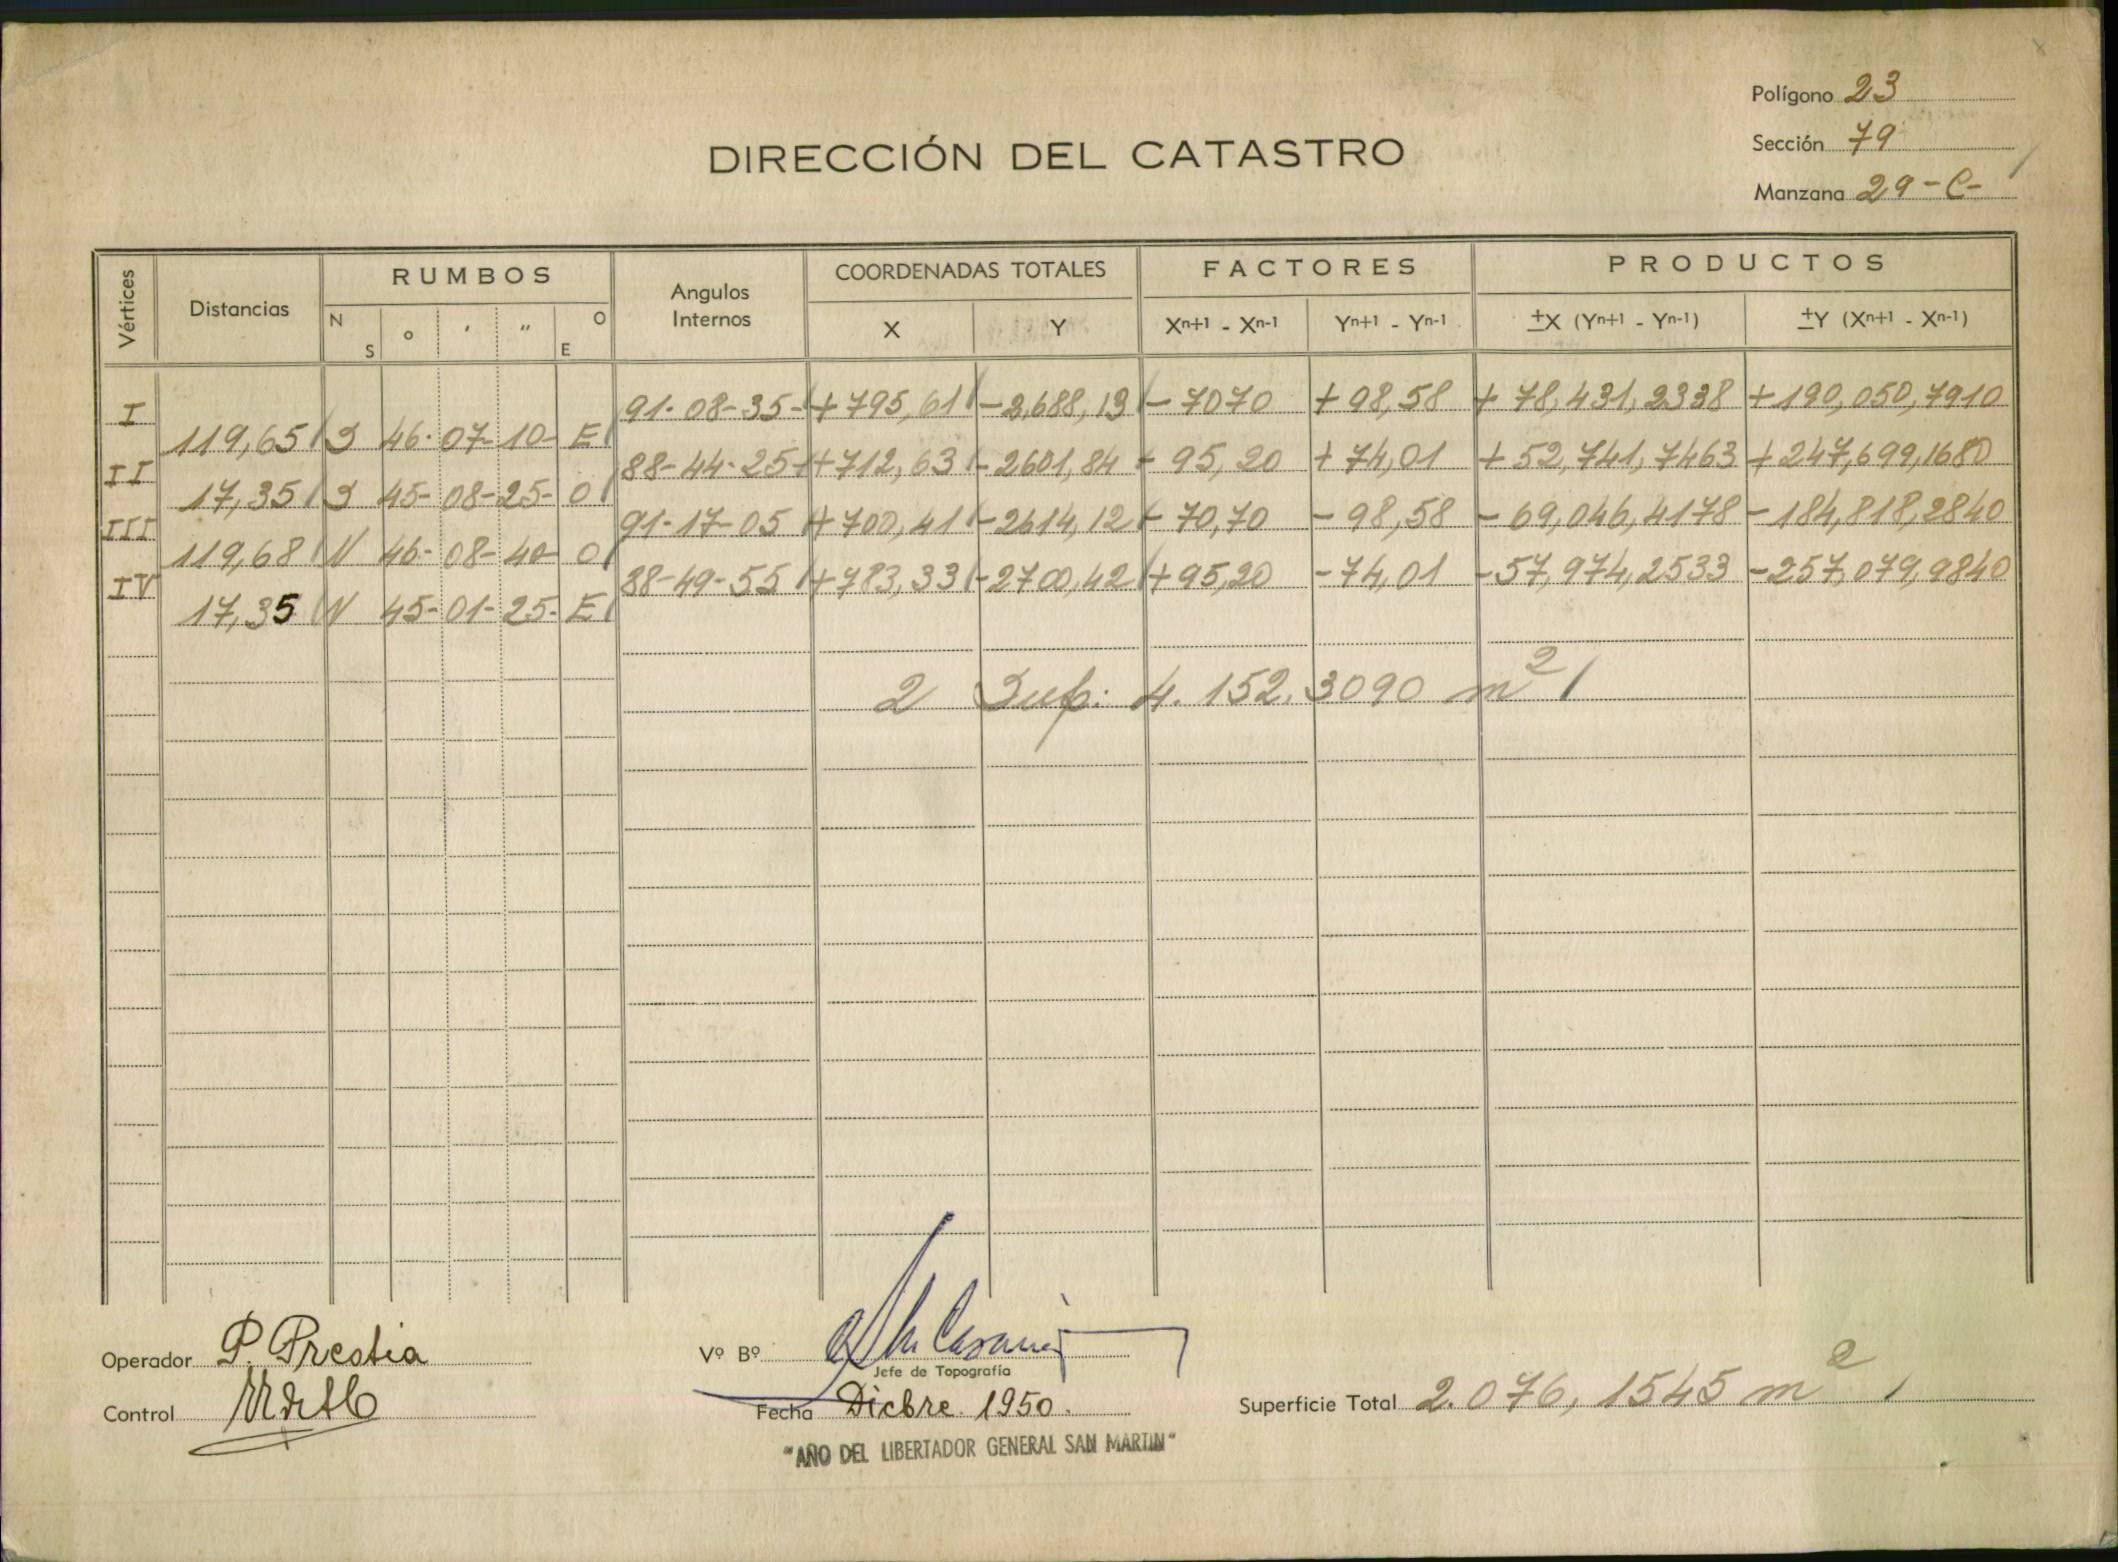 Polígono 23
Sección 79
Manzana 29-C-
DIRECCIÓN DEL CATASTRO
Vértices Distancias RUMBOS Angulos Internos COORDENADAS TOTALES FACTORES PRODUCTOS
N S o ' " O E X Y Xn+1 - Xn-1 Yn+1 - Yn-1 ±X (Yn+1 - Yn-1) ±Y (Xn+1 - Xn-1)
I 91-08-35- +795,61 -2,688,13 -7070 +98,58 +78,431,2338 +190,050,7910
119,65 S 46-07-10- E
II 88-44-25 +712,63 -2601,84 - 95,20 +74,01 +52,741,7463 +247,695,1680
17,35 S 45-08-25- O
III 91-17-05 +700,41 -2614,12 + 70,70 -98,58 -69,046,4178 -184,818,2840
119,68 N 46-08-40- O
IV 88-49-55 +783,33 -2700,42 +95,20 -74,01 -57,974,2533 -257,079,9840
17,35 N 45-01-25- E
2 Sup: 4.152.3090 m2
Operador P. Prestia
Control
Vº Bº
Jefe de Topografía
Fecha Dicbre. 1950.
Superficie Total 2.076,1545 m2
"AÑO DEL LIBERTADOR GENERAL SAN MARTIN"